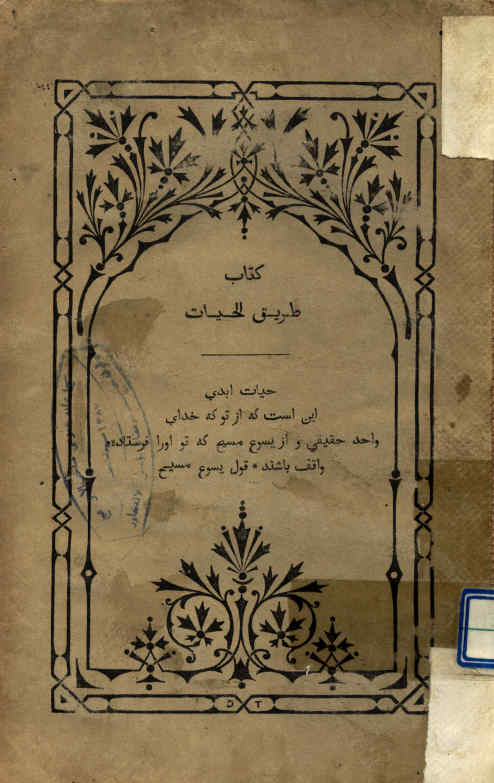 كتاب
طريق الحيات
حيات ابدي
اين است كه از تو كه خداي
واحد حقيقي و از يسوع مسيح كه تو اورا فرستاده‌ء
واقف باشند * قول يسوع مسيح